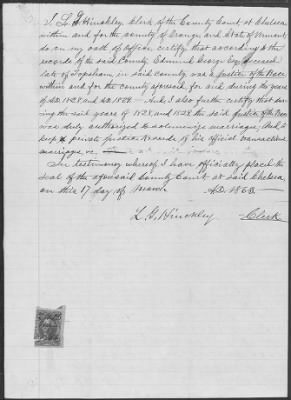 I, L. G. Hinckley, Clerk of the County Court at Chelsea
within and for the county of Orange and State of Vermont
do, on my oath of Office, certify that according to the
records of the said County Edmund George Esq. deceased
late of Topsham, in said county was a Justice of the Peace
within and for the county aforesaid for and during the years
of AD. 1828. And I also further certify that
during the said years of 1828 and the said Justice of the Peace
was duly authorized to solemnize marriages, And to
keep private records of his official transactions
marriages, &c
In testimony whereof I have officially placed the
seal of the aforesaid County Court at said Chelsea,
on this 17 day of March A.D. 1868.
L. G. Hinckley Clerk